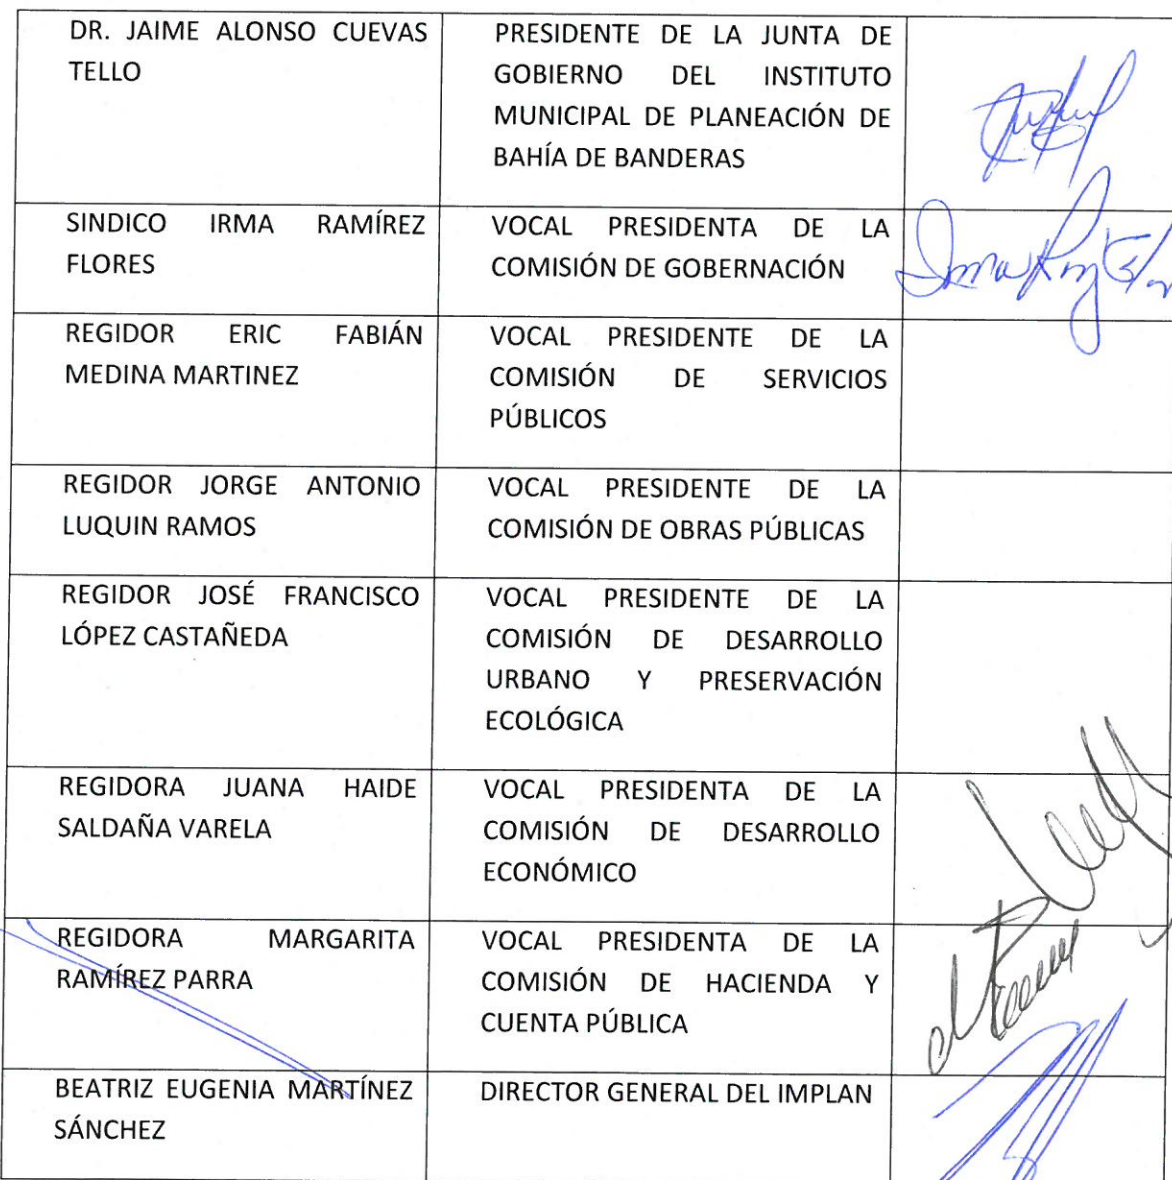 DR. JAIME ALONSO CUEVAS
TELLO
PRESIDENTE DE LA JUNTA DE
GOBIERNO DEL INSTITUTO
MUNICIPAL DE PLANEACIÓN DE
BAHÍA DE BANDERAS
SINDICO IRMA RAMÍREZ
FLORES
VOCAL PRESIDENTA DE LA
COMISIÓN DE GOBERNACIÓN
REGIDOR ERIC FABIÁN
MEDINA MARTINEZ
VOCAL PRESIDENTE DE LA
COMISIÓN DE SERVICIOS
PÚBLICOS
REGIDOR JORGE ANTONIO
LUQUIN RAMOS
VOCAL PRESIDENTE DE LA
COMISIÓN DE OBRAS PÚBLICAS
REGIDOR JOSÉ FRANCISCO
LÓPEZ CASTAÑEDA
VOCAL PRESIDENTE DE LA
COMISIÓN DE DESARROLLO
URBANO Y PRESERVACIÓN
ECOLÓGICA
REGIDORA JUANA HAIDE
SALDAÑA VARELA
VOCAL PRESIDENTA DE LA
COMISIÓN DE DESARROLLO
ECONÓMICO
REGIDORA MARGARITA
RAMÍREZ PARRA
VOCAL PRESIDENTA DE LA
COMISIÓN DE HACIENDA Y
CUENTA PÚBLICA
BEATRIZ EUGENIA MARTÍNEZ
SÁNCHEZ
DIRECTOR GENERAL DEL IMPLAN